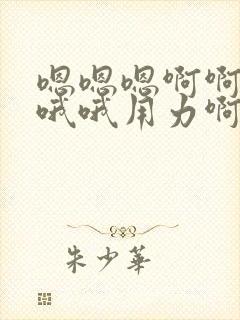 嗯嗯嗯啊啊
哦哦用力啊
朱少华